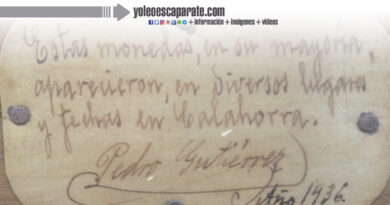 yoleoescaparate.com
+ información + imágenes + vídeos
Estas monedas, en su mayoría,
aparecieron, en diversos lugares
y fechas en Calahorra.
Pedro Gutiérrez
Año 1936.